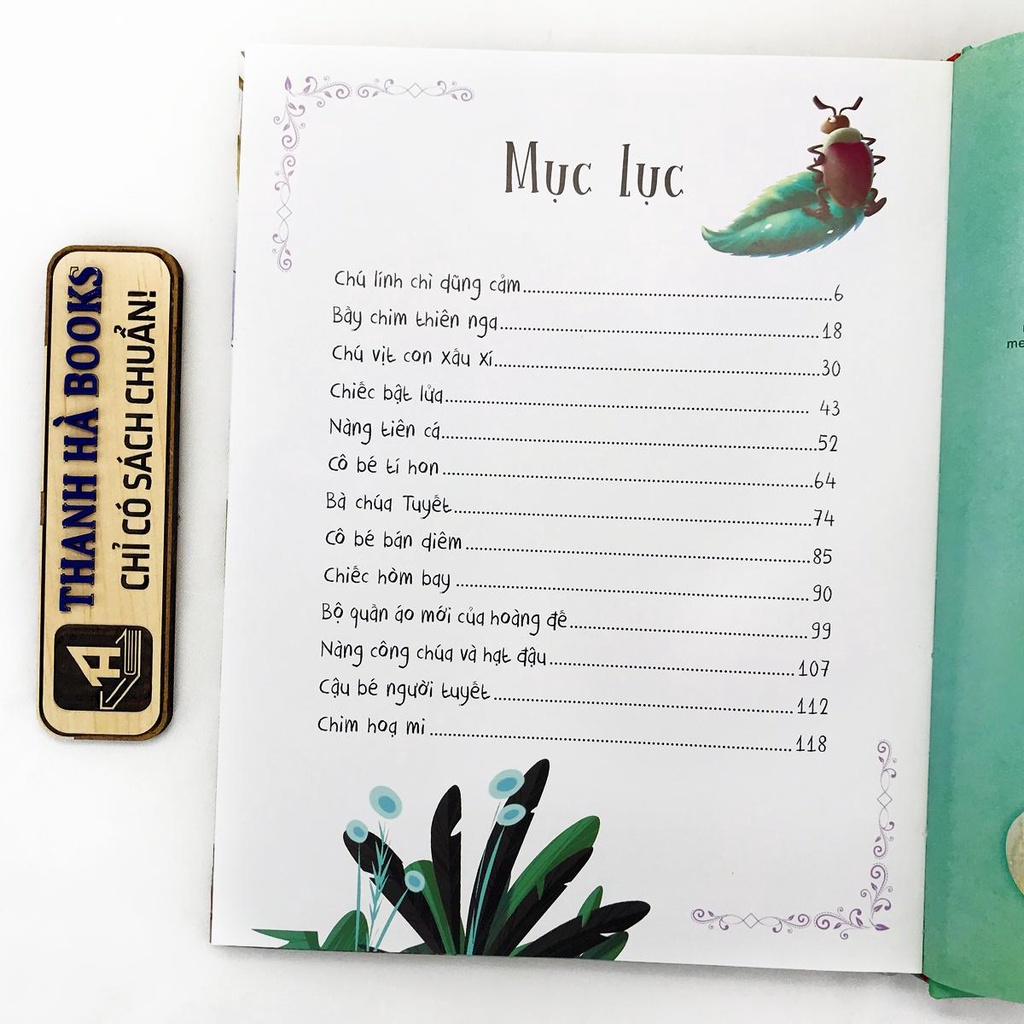 THANH HÀ BOOKS
CHỈ CÓ SÁCH CHUẨN!
Mục lục
Chú lính chì dũng cảm........6
Bầy chim thiên nga........18
Chú vịt con xấu xí........30
Chiếc bật lửa........43
Nàng tiên cá........52
Cô bé tí hon........64
Bà chúa Tuyết........74
Cô bé bán diêm........85
Chiếc hòm bay........90
Bộ quần áo mới của hoàng đế........99
Nàng công chúa và hạt đậu........107
Cậu bé người tuyết........112
Chim hoạ mi........118